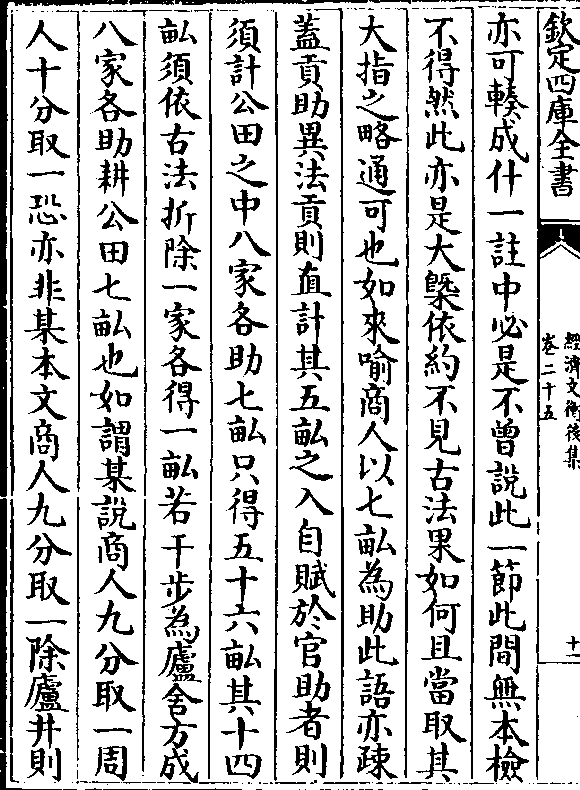 欽定四庫全書
經濟文衡後集
卷二十五
十一
亦可輳成什一註中必是不曾說此一節此間無本檢
不得然此亦是大槩依約不見古法果如何且當取其
大指之略通可也如來喻商人以七畝為助此語亦疎
蓋貢助異法貢則直計其五畝之入自賦於官助者則
須計公田之中八家各助七畝只得五十六畝其十四
畝須依古法折除一家各得一畝若干步為廬舍方成
八家各助耕公田七畝也如謂某說商人九分取一周
人十分取一恐亦非某本文商人九分取一除廬井則